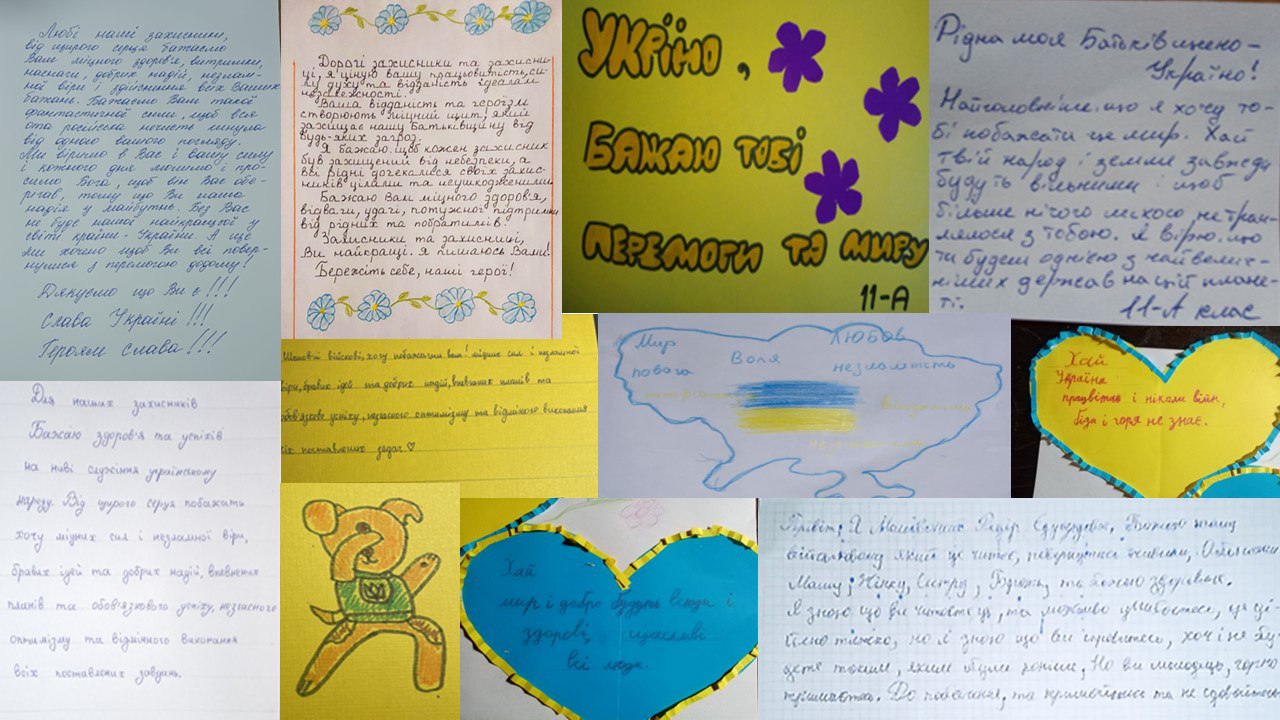 Любі наші захисники,
від щирого серця бажаємо
Вам міцного здоров'я, витримки,
наснаги, добрих надій, незлам-
ної віри здійснення всіх Ваших
бажань. Бажаємо Вам такої
фантастичної сили, щоб вся
ота російська нечисть гинула
від одного вашого погляду.
Ми віримо в Вас і вашу силу
і кожного дня молимо і про-
симо Бога, щоб він Вас обе-
рігав, тому що Ви наша
надія у майбутнє. Без Вас
не буде нашої найкращої у
світі країни - України. А ще
ми хочемо щоб Ви всі повер-
нулися з перемогою додому!
Дякуємо що Ви є!!!
Слава Україні!!!
Героям слава!!!
Дорогі захисники та захисни-
ці, я ціную вашу працьовитість, си-
лу духу та відданість ідеалам
незалежності!
Ваша відданість та героїзм
створюють міцний щит, який
захищає нашу Батьківщину від
будь-яких загроз.
Я бажаю, щоб кожен захисник
був захищений від небезпеки, а
ви рідні дочекалися своїх захис-
ників цілими та неушкодженими.
Бажаю Вам міцного здоров'я,
відваги, удачі, потужної підтримки
від рідних та побратимів!
Захисники та захисниці,
Ви найкращі. Я пишаюсь Вами!
Бережіть себе, наші герої!
УКРЇНО,
БАЖАЮ ТОБІ
ПЕРЕМОГИ ТА МИРУ
11-А
Рідна моя Батьківщено -
Україно!
Найголовніше, що я хочу то-
бі побажати це мир. Хай
твій народ і земля завжди
будуть вільними і щоб
більше нічого лихого, не трап-
лялося з тобою. Я вірю, що
ти будеш однією з найвелич-
ніших держав на цій плане-
ті.
11-А клас
Шановні військові, хочу побажати вам! міцних сил і незламної
віри, бравих ідей та добрих надій, впевнених планів та
обов'язково успіху, незгасного оптимізму та відмінного виконання
всіх поставлених задач ♡
Мир Воля ЛЮБОВ
повага незламність
Хай
Україна
працвітає і ніколи війн,
біди і горя не знає.
Для наших захисників
Бажаю здоров'я та успіхів
на ниві служіння українському
народу. Від щирого серця побажати
хочу міцних сил і незламної віри,
бравих ідей та добрих надій, впевнених
планів та обов'язкового успіху, незгасного
оптимізму та відмінного виконання
всіх поставлених завдань.
Хай
мир і добро будуть всюди і
здорові, щасливі
всі люди.
Привіт, Я Бажаю
який це читає, повернутися живим, Обійняти
Маму, Жінку, Сестру, та бажаю здоров'я.
Я знаю що ви та можливо це
тяжко, но я знаю що ви хоч і не бу-
дете такими, якими були раніше, Но ви молодець,
До побачення, та тримайтесь та не здавайтесь